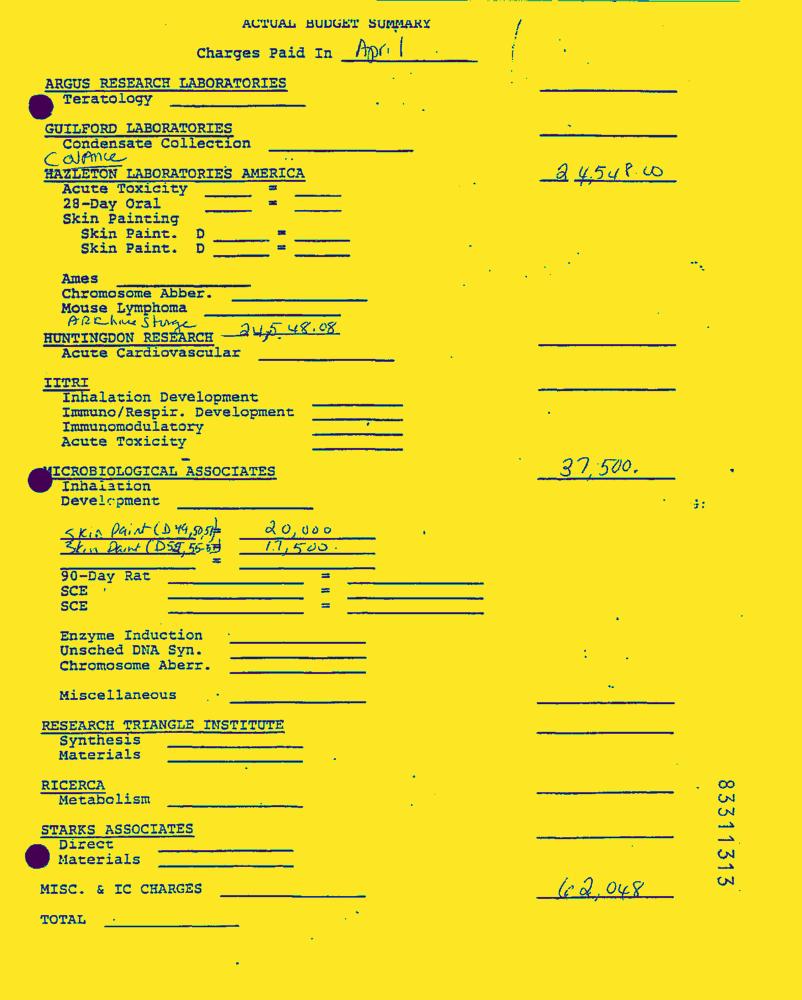 ACTUAL BUDGET SUMMARY
Charges Paid In April
ARGUS RESEARCH LABORATORIES
Teratology
GUILFORD LABORATORIES
Condensate Collection
Covance
HAZLETON LABORATORIES AMERICA 24,548.00
Acute Toxicity =
28-Day Oral =
Skin Painting
Skin Paint. D =
Skin Paint. D =
Ames
Chromosome Abber.
Mouse Lymphoma
Archive Storge 24,548.08
HUNTINGDON RESEARCH
Acute Cardiovascular
IITRI
Inhalation Development
Immuno/Respir. Development
Immunomodulatory
Acute Toxicity
MICROBIOLOGICAL ASSOCIATES 37,500.
Inhalation
Development
Skin Paint (D49,50,51)= 20,000
Skin Paint = 17,500.
=
90-Day Rat =
SCE =
SCE =
Enzyme Induction
Unsched DNA Syn.
Chromosome Aberr.
Miscellaneous
RESEARCH TRIANGLE INSTITUTE
Synthesis
Materials
RICERCA
Metabolism
STARKS ASSOCIATES
Direct
Materials
MISC. & IC CHARGES 62,048
TOTAL
83311313